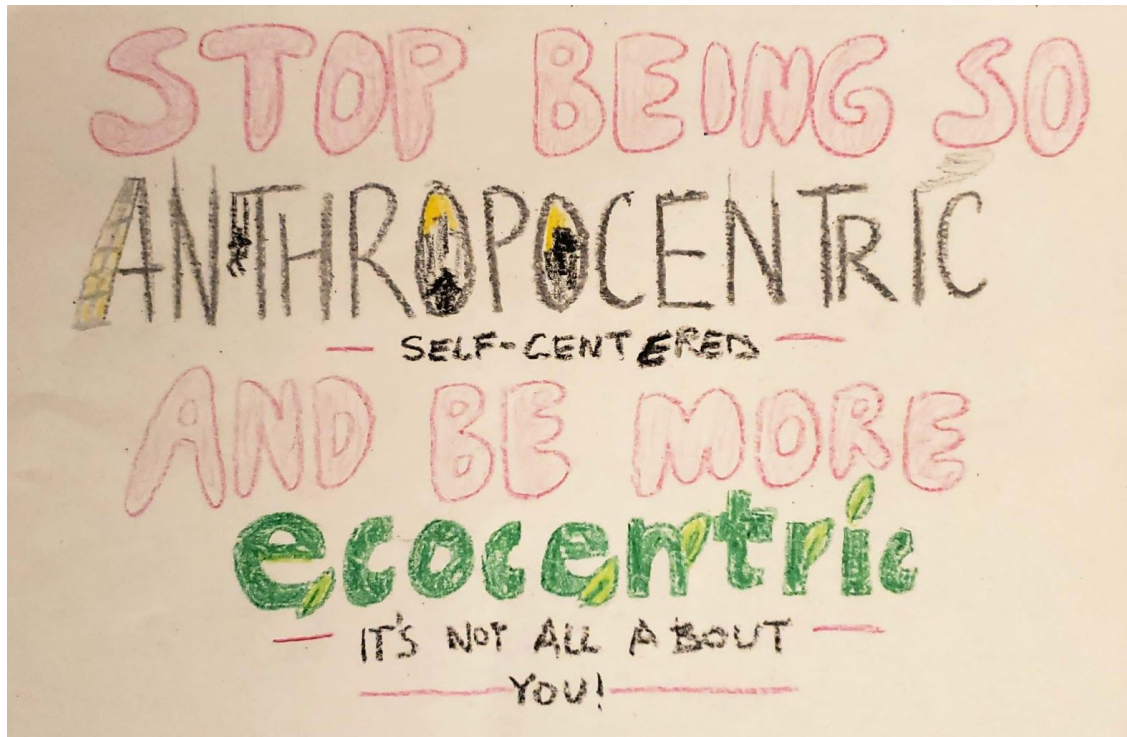 STOP BEING SO
ANTHROPOCENTRIC
SELF-CENTERED
AND BE MORE
ecocentric
IT'S NOT ALL ABOUT
YOU!